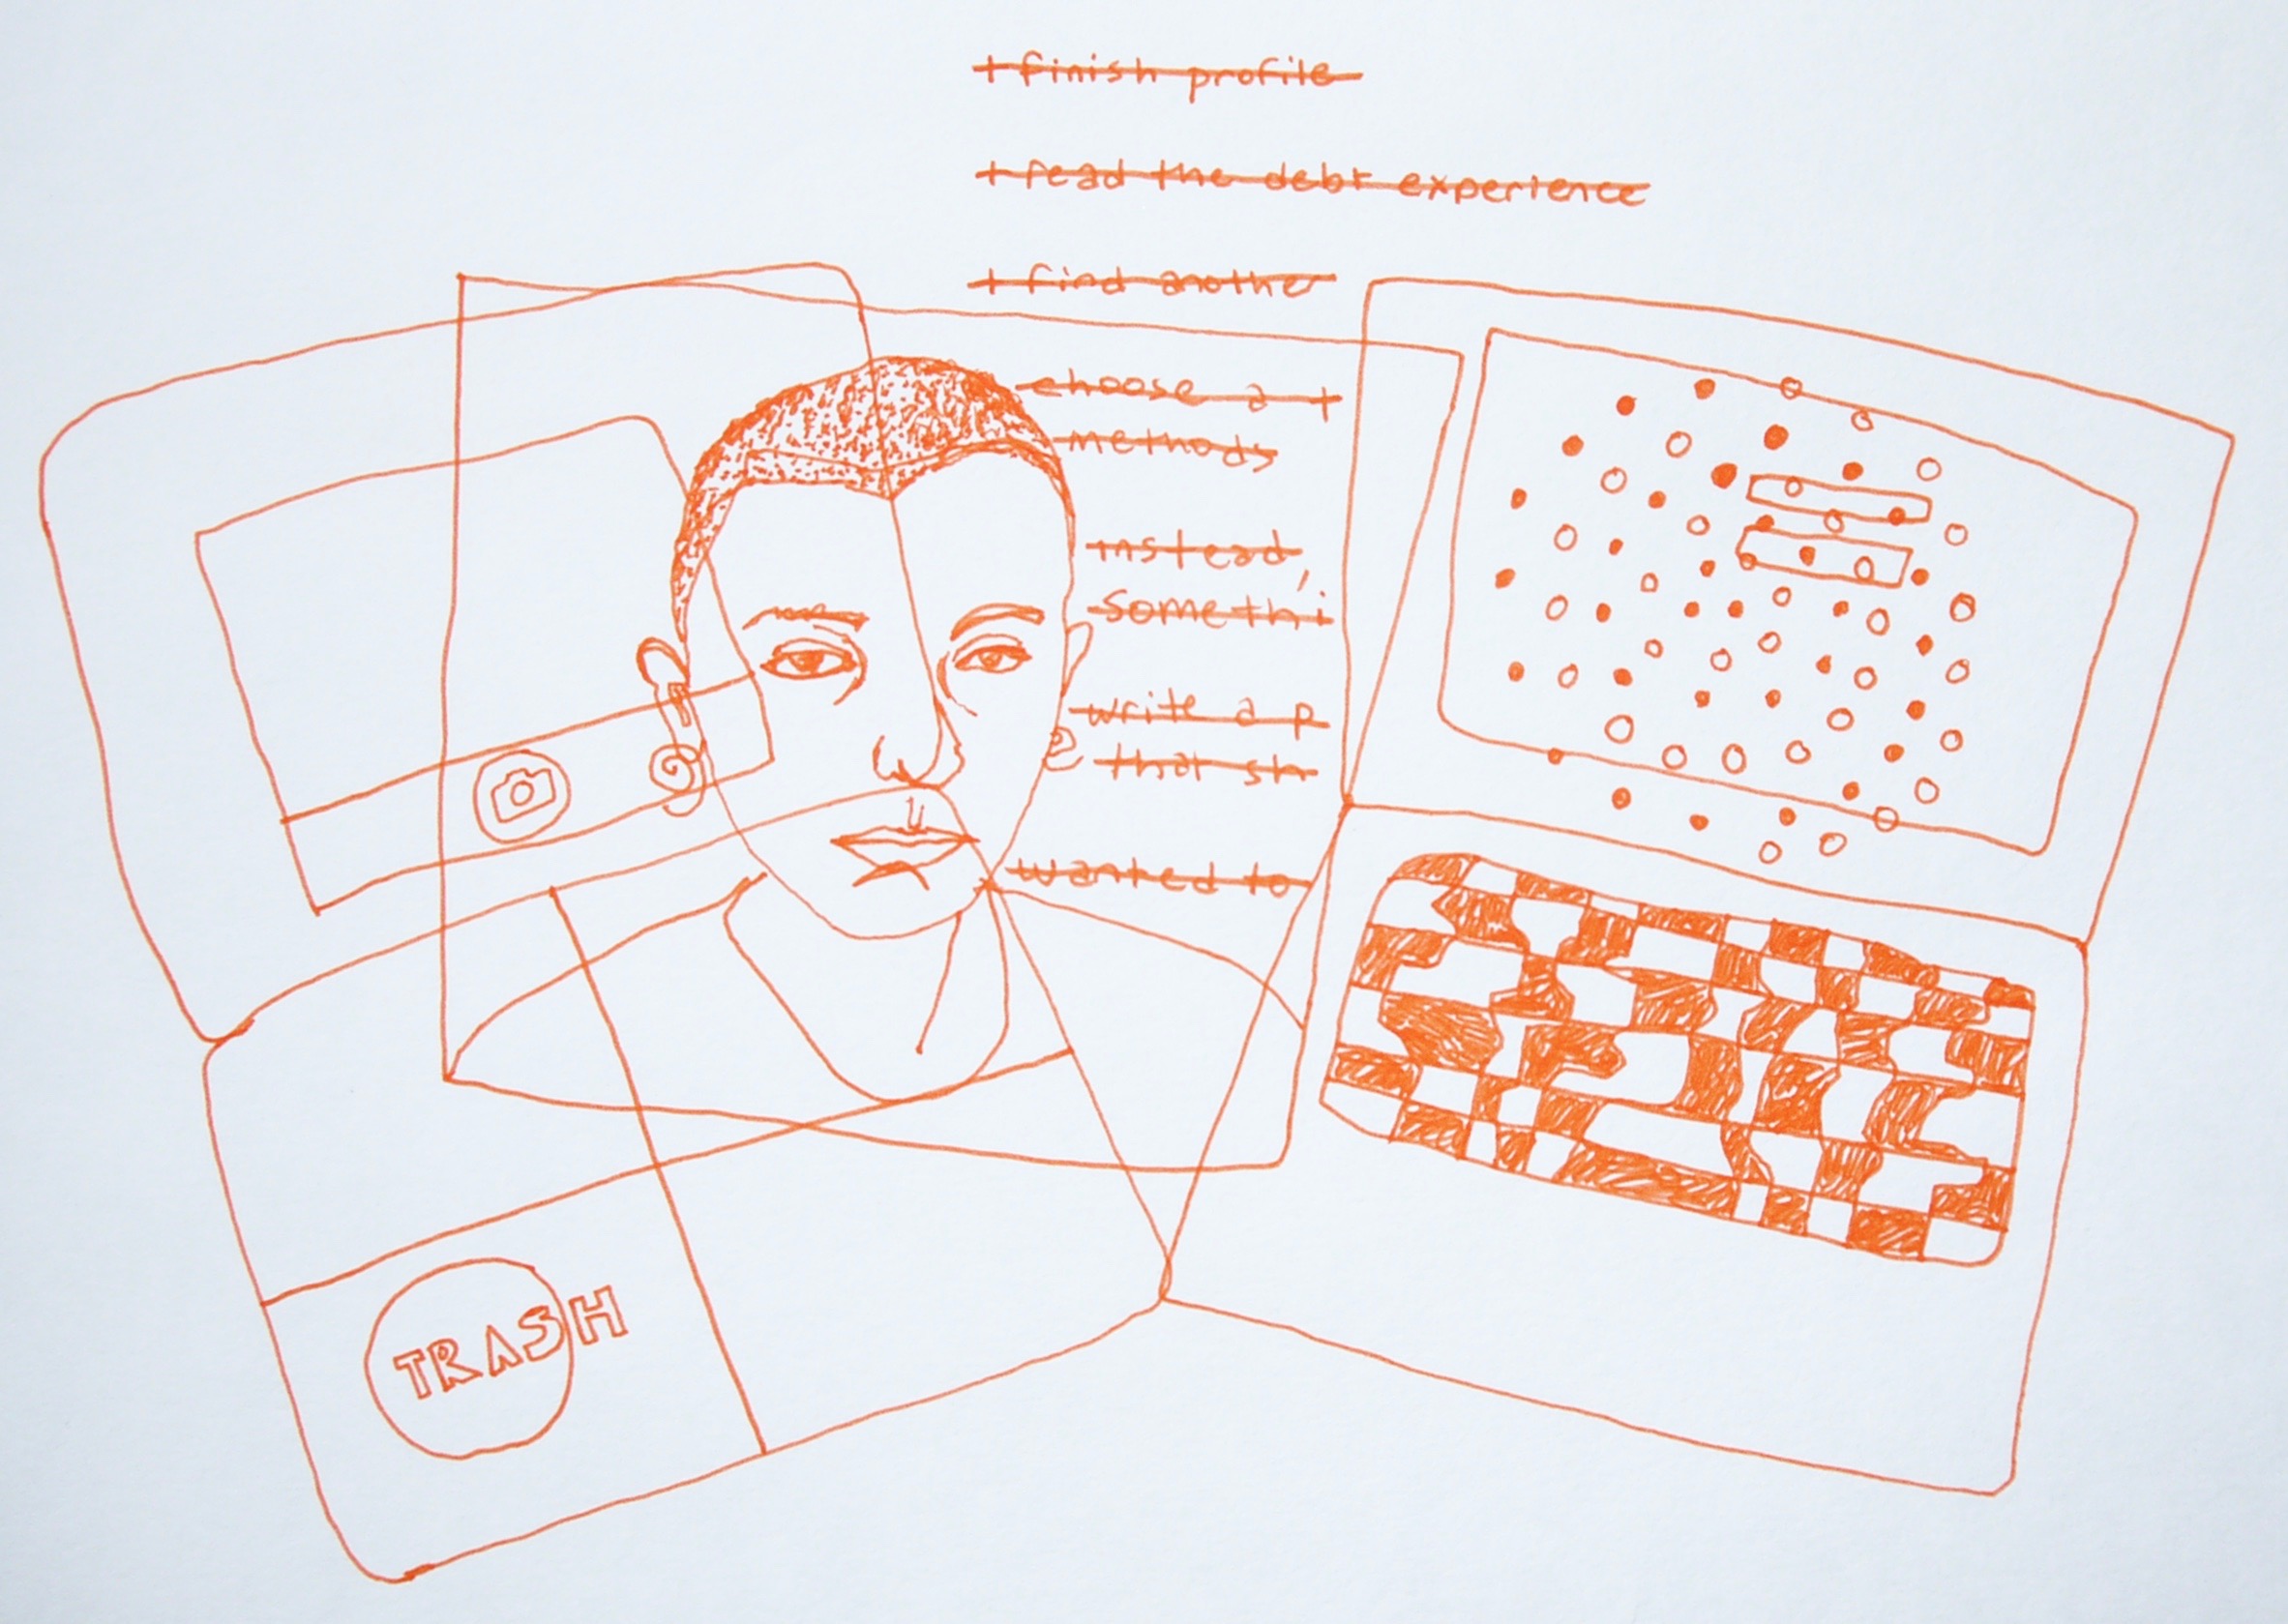 + finish profile
+ read the debt experience
+ find another
choose a t
methods
instead,
somethi
write a p
that sh
wanted to
TRASH